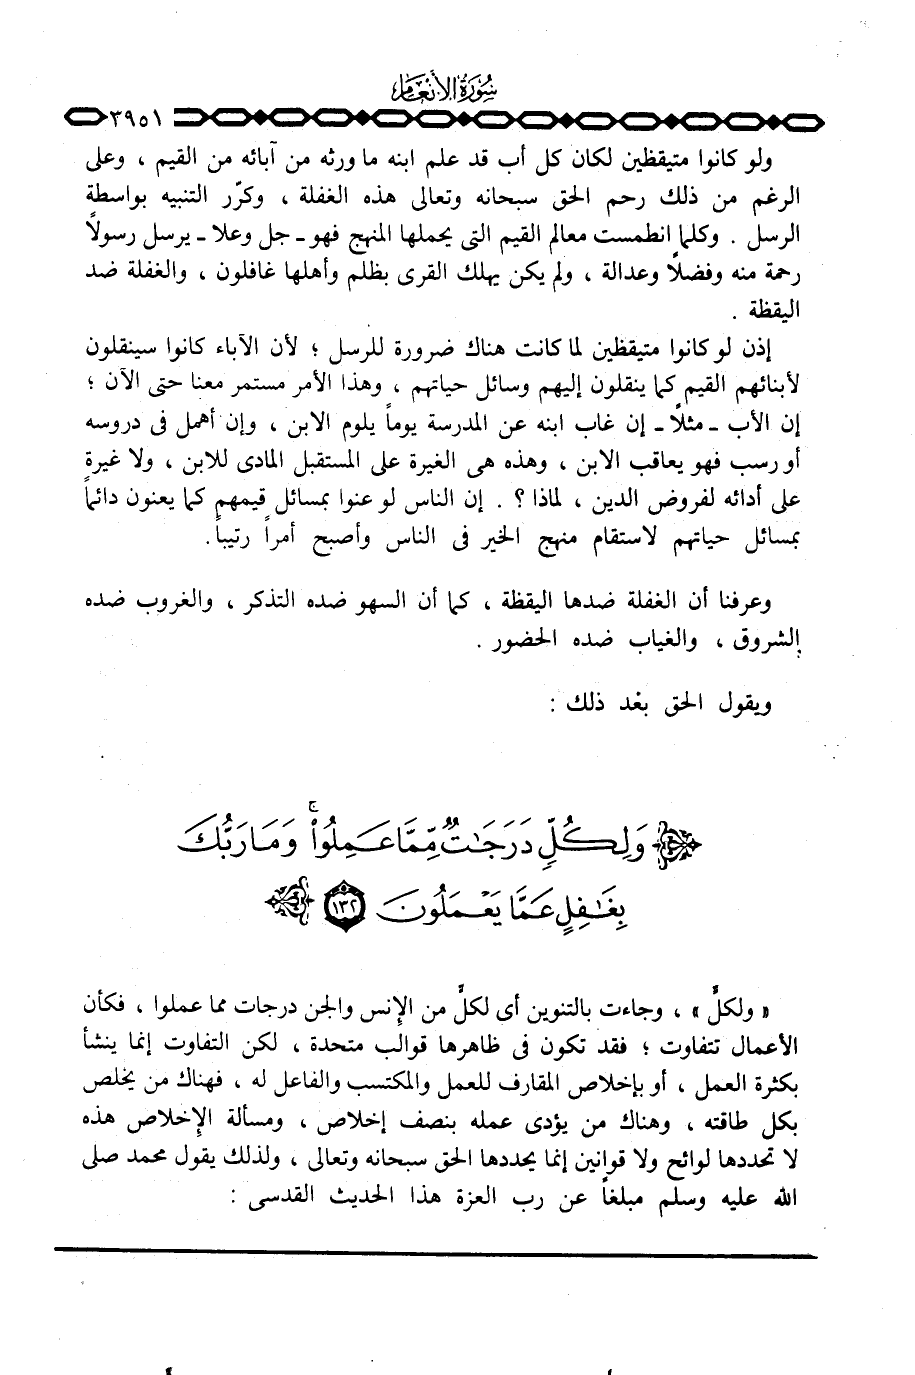 سُورَةُ الأَنْعَامِ
٣٩٥١
ولو كانوا متيقظين لكان كل أب قد علم ابنه ما ورثه من آبائه من القيم ، وعلى
الرغم من ذلك رحم الحق سبحانه وتعالى هذه الغفلة ، وكرّر التنبيه بواسطة
الرسل . وكلما انطمست معالم القيم التى يحملها المنهج فهو ـ جل وعلا ـ يرسل رسولاً
رحمة منه وفضلاً وعدالة ، ولم يكن يهلك القرى بظلم وأهلها غافلون ، والغفلة ضد
اليقظة .
إذن لو كانوا متيقظين لما كانت هناك ضرورة للرسل ؛ لأن الآباء كانوا سينقلون
لأبنائهم القيم كما ينقلون إليهم وسائل حياتهم ، وهذا الأمر مستمر معنا حتى الآن ؛
إن الأب ـ مثلاً ـ إن غاب ابنه عن المدرسة يوماً يلوم الابن ، وإن أهمل فى دروسه
أو رسب فهو يعاقب الابن ، وهذه هى الغيرة على المستقبل المادى للابن ، ولا غيرة
على أدائه لفروض الدين ، لماذا ؟ . إن الناس لو عنوا بمسائل قيمهم كما يعنون دائماً
بمسائل حياتهم لاستقام منهج الخير فى الناس وأصبح أمراً رتيباً .
وعرفنا أن الغفلة ضدها اليقظة ، كما أن السهو ضده التذكر ، والغروب ضده
الشروق ، والغياب ضده الحضور .
ويقول الحق بعْد ذلك :
وَلِكُلٍّ دَرَجَٰتٌ مِّمَّا عَمِلُوا۟ ۚ وَمَا رَبُّكَ
بِغَٰفِلٍ عَمَّا يَعْمَلُونَ ١٣٢
« ولكلٍّ » ، وجاءت بالتنوين أى لكلٍّ من الإنس والجن درجات مما عملوا ، فكأن
الأعمال تتفاوت ؛ فقد تكون فى ظاهرها قوالب متحدة ، لكن التفاوت إنما ينشأ
بكثرة العمل ، أو بإخلاص المقارف للعمل والمكتسب والفاعل له ، فهناك من يخلص
بكل طاقته ، وهناك من يؤدى عمله بنصف إخلاص ، ومسألة الإخلاص هذه
لا تحددها لوائح ولا قوانين إنما يحددها الحق سبحانه وتعالى ، ولذلك يقول محمد صلى
الله عليه وسلم مبلغاً عن رب العزة هذا الحديث القدسى :